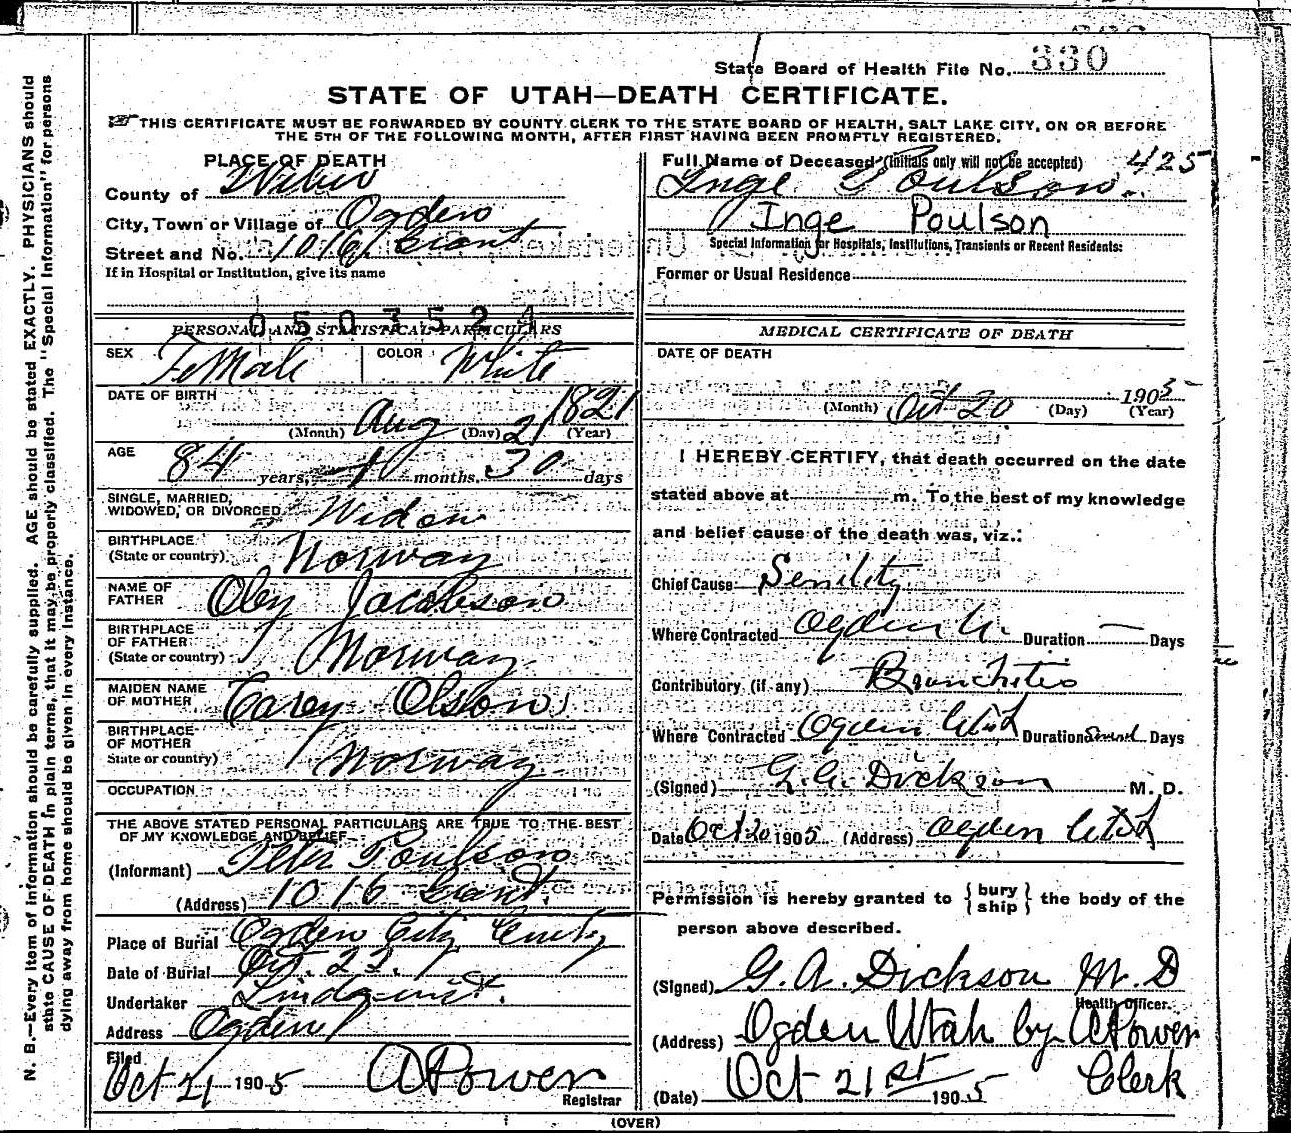 State Board of Health File No. 330
STATE OF UTAH—DEATH CERTIFICATE.
THIS CERTIFICATE MUST BE FORWARDED BY COUNTY CLERK TO THE STATE BOARD OF HEALTH, SALT LAKE CITY, ON OR BEFORE
THE 5TH OF THE FOLLOWING MONTH, AFTER FIRST HAVING BEEN PROMPTLY REGISTERED.
PLACE OF DEATH
County of Weber
City, Town or Village of Ogden
Street and No. 1016 Grant
If in Hospital or Institution, give its name
0503524
PERSONAL AND STATISTICAL PARTICULARS
SEX Female COLOR White
DATE OF BIRTH
(Month) Aug (Day) 21 (Year) 1821
AGE
84 years, months, 30 days
SINGLE, MARRIED,
WIDOWED, OR DIVORCED Widow
BIRTHPLACE
(State or country) Norway
NAME OF
FATHER Oley Jacobson
BIRTHPLACE
OF FATHER
(State or country) Norway
MAIDEN NAME
OF MOTHER Carey Olson
BIRTHPLACE
OF MOTHER
State or country) Norway
OCCUPATION
THE ABOVE STATED PERSONAL PARTICULARS ARE TRUE TO THE BEST
OF MY KNOWLEDGE AND BELIEF
(Informant) Peter Poulson
(Address) 1016 Grant.
Place of Burial Ogden City Cemty
Date of Burial Oct. 22.
Undertaker Lindquist.
Address Ogden
Filed
Oct 21 1905 A Power
Registrar
Full Name of Deceased (Initials only will not be accepted) 425
Inge Poulson.
Inge Poulson
Special Information for Hospitals, Institutions, Transients or Recent Residents:
Former or Usual Residence
MEDICAL CERTIFICATE OF DEATH
DATE OF DEATH
(Month) Oct 20 (Day) 1905 (Year)
I HEREBY CERTIFY, that death occurred on the date
stated above at m. To the best of my knowledge
and belief cause of the death was, viz.:
Chief Cause Senility
Where Contracted Ogden U. Duration — Days
Contributory (if any) Bronchitis
Where Contracted Ogden Utah Duration Days
(Signed) G.A. Dickson M. D.
Date Oct 20 1905 (Address) Ogden Utah
Permission is hereby granted to { bury ship } the body of the
person above described.
(Signed) G. A. Dickson M. D
Health Officer.
(Address) Ogden Utah by A Power
Clerk
(Date) Oct 21st 1905
(OVER)
N. B.—Every item of information should be carefully supplied. AGE should be stated EXACTLY. PHYSICIANS should
state CAUSE OF DEATH in plain terms, that it may be properly classified. The "Special Information" for persons
dying away from home should be given in every instance.